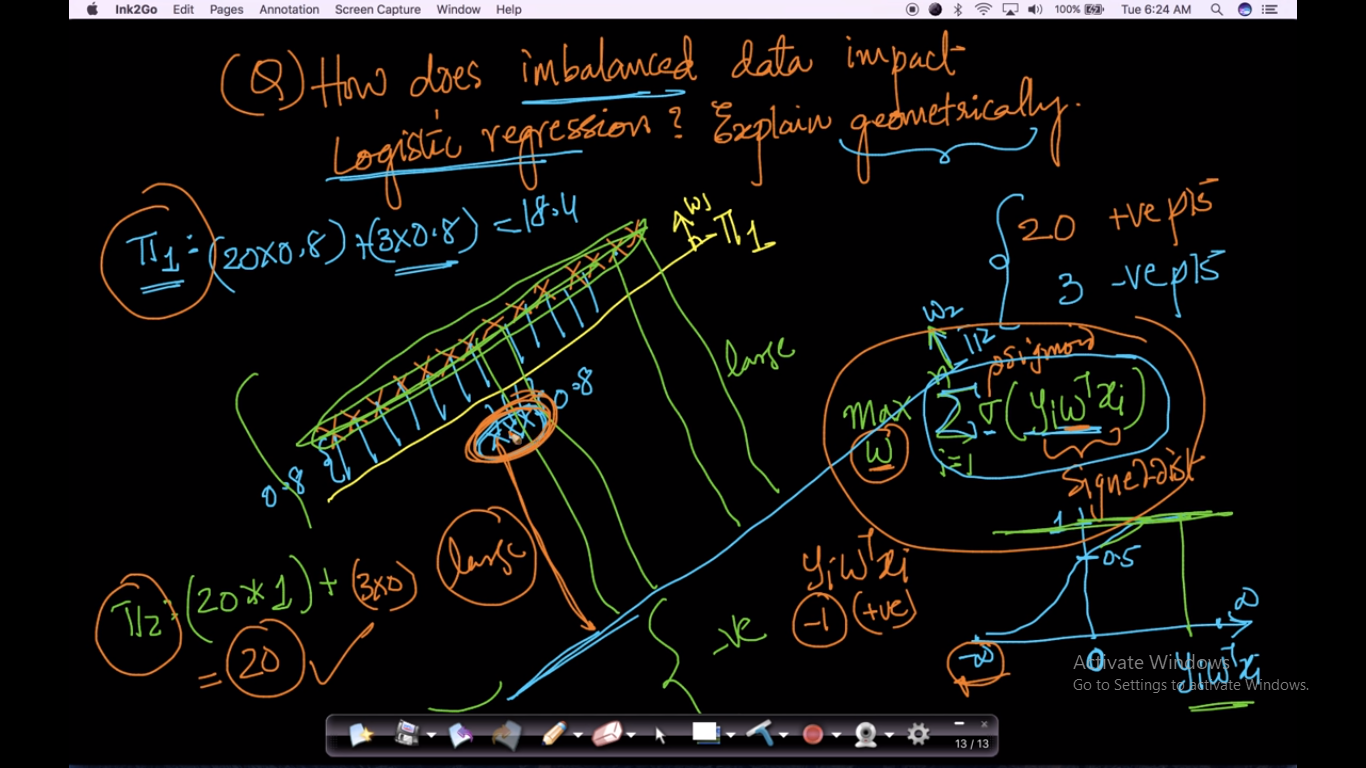 Ink2Go Edit Pages Annotation Screen Capture Window Help 100% Tue 6:24 AM
(Q) How does imbalanced data impact
Logistic regression? Explain geometrically.
π1 : (20x0.8) + (3x0.8) = 18.4
W1
π1
20 +ve pts
3 -ve pts
W2
π2
large
sigmoid
0.8
max Σ σ (yi wᵀ xi)
w i=1
signed-dist
0.8
1
large
0.5
yi wᵀ xi
-1 (+ve)
π2 : (20*1) + (3x0)
= 20
-ve
∞
-∞ 0 yi wᵀ xi
Activate Windows
Go to Settings to activate Windows.
13 / 13